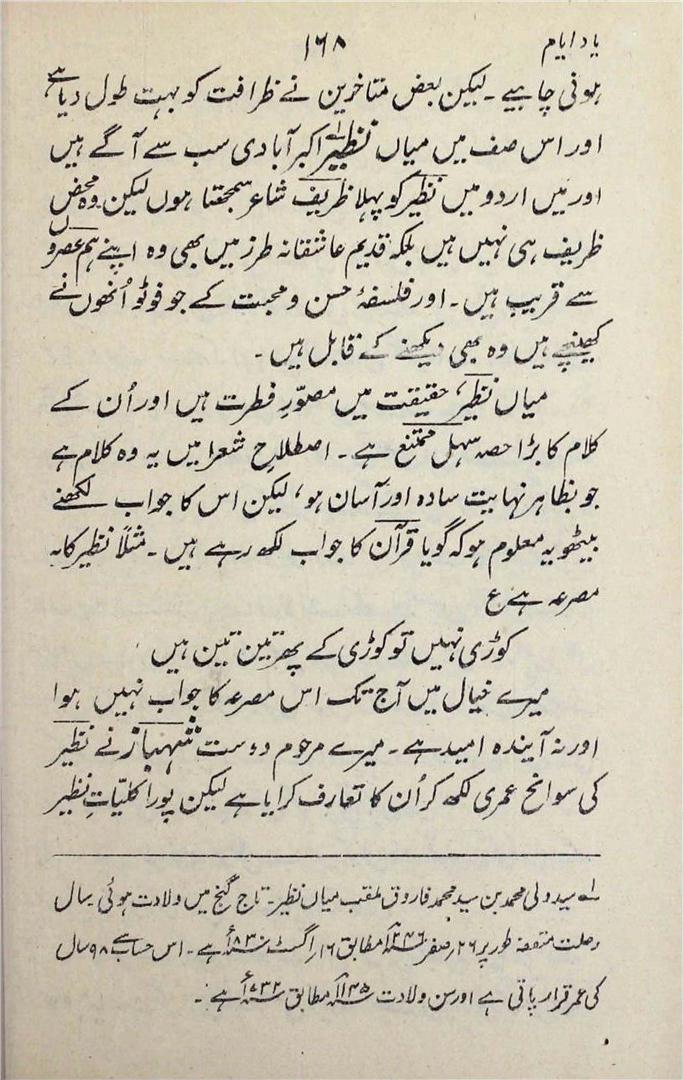 یاد ایام
۱۶۸
ہونی چاہیے۔ لیکن بعض متاخرین نے ظرافت کو بہت طول دیا ہے
اور اس صف میں میاں نظیرؔ اکبرآبادی سب سے آگے ہیں
اور میں اردو میں نظیرؔ کو پہلا ظریف شاعر سمجھتا ہوں لیکن وہ محض
ظریف ہی نہیں ہیں بلکہ قدیم عاشقانہ طرز میں بھی وہ اپنے ہم عصروں
سے قریب ہیں۔ اور فلسفۂ حسن و محبت کے جو فوٹو اُنھوں نے
کھینچے ہیں وہ بھی دیکھنے کے قابل ہیں۔
میاں نظیرؔ، حقیقت میں مصوّرِ فطرت ہیں اور اُن کے
کلام کا بڑا حصہ سہل ممتنع ہے۔ اصطلاحِ شعرا میں یہ وہ کلام ہے
جو بظاہر نہایت سادہ اور آسان ہو، لیکن اس کا جواب لکھنے
بیٹھو یہ معلوم ہو کہ گویا قرآن کا جواب لکھ رہے ہیں۔ مثلاً نظیر کا یہ
مصرعہ ہے ع
کوڑی نہیں تو کوڑی کے پھر تین تین ہیں
میرے خیال میں آج تک اس مصرعہ کا جواب نہیں ہوا
اور نہ آیندہ امید ہے۔ میرے مرحوم دوست شہباز نے نظیر
کی سوانح عمری لکھ کر اُن کا تعارف کرایا ہے لیکن پورا کلیّاتِ نظیر
لہ سید ولی محمد بن سید محمد فاروق ملقب میاں نظیر۔ تاج گنج میں ولادت ہوئی سال
رحلت متفقہ طور پر ۲۶؍ صفر ۱۲۴۶ھ مطابق ۱۶؍ اگست ۱۸۳۰ء ہے۔ اس حساب سے ۹۸ سال
کی عمر قرار پاتی ہے اور سن ولادت ۱۱۴۵ھ مطابق ۱۷۳۲ء ہے۔